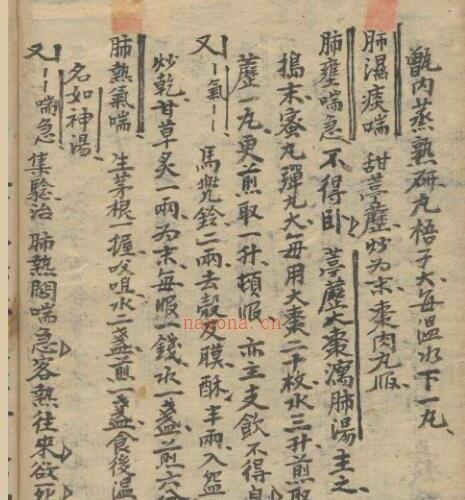 甑內蒸熟研丸梧子大每溫水下一丸
肺濕痰喘 甜葶藶炒為末棗肉丸服
肺壅喘急 不得臥 葶藶大棗瀉肺湯主之
搗末蜜丸彈丸大每用大棗二十枚水三升煎取
藶一丸更煎取一升頓服亦主支飲不得息
又丨氣丨丨 馬兜鈴二兩去殼及膜酥半兩入盌
炒乾甘草炙一兩為末每服一錢水一盞煎六分
肺熱氣喘 生茅根一握㕮咀水二盞煎一盞食後溫
名如神湯
又丨丨喘急 集驗治肺熱悶喘急客熱往來欲死
nayona.cn